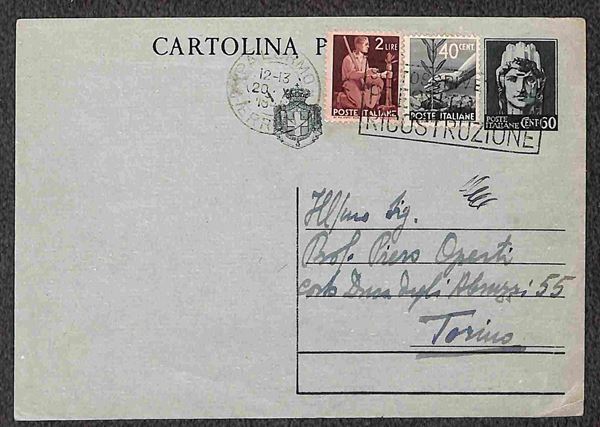 CARTOLINA P
2 LIRE
POSTE ITALIANE
40 CENT.
POSTE ITALIANE
POSTE
ITALIANE
CENT. 60
12-13
20
RICOSTRUZIONE
Ill/mo Sig.
Prof. Piero Operti
corso Duca degli Abruzzi 55
Torino